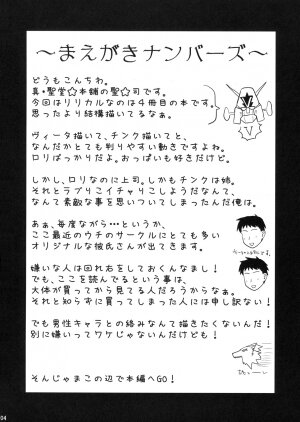 ～まえがきナンバーズ～
どうもこんちわ。
真・聖堂☆本舗の聖☆司です。
今回はリリカルなのは4冊目の本です。
思ったより結構描いてるなぁ。
ヴィータ描いて、チンク描いてと、
なんだかとても判りやすい動きですよね。
ロリばっかりだよ。おっぱいも好きだけど。
しかし、ロリなのに上司。しかもチンクは姉。
それとラブりこイチャりこしようだなんて、
なんて素敵な事を思いついてしまったんだ俺は。
あぁ、毎度ながら…というか、
ここ最近のウチのサークルにとても多い
オリジナルな彼氏さんが出てきます。
嫌いな人は回れ右をしておくんなまし！
でも、ここを読んでるという事は、
大体が買ってから見てる人だろうからなぁ。
それと知らずに買ってしまった人には申し訳ない！
でも男性キャラとの絡みなんて描きたくないんだ！
別に嫌いってワケじゃないんだけども！
そんじゃまこの辺で本編へGO！
04